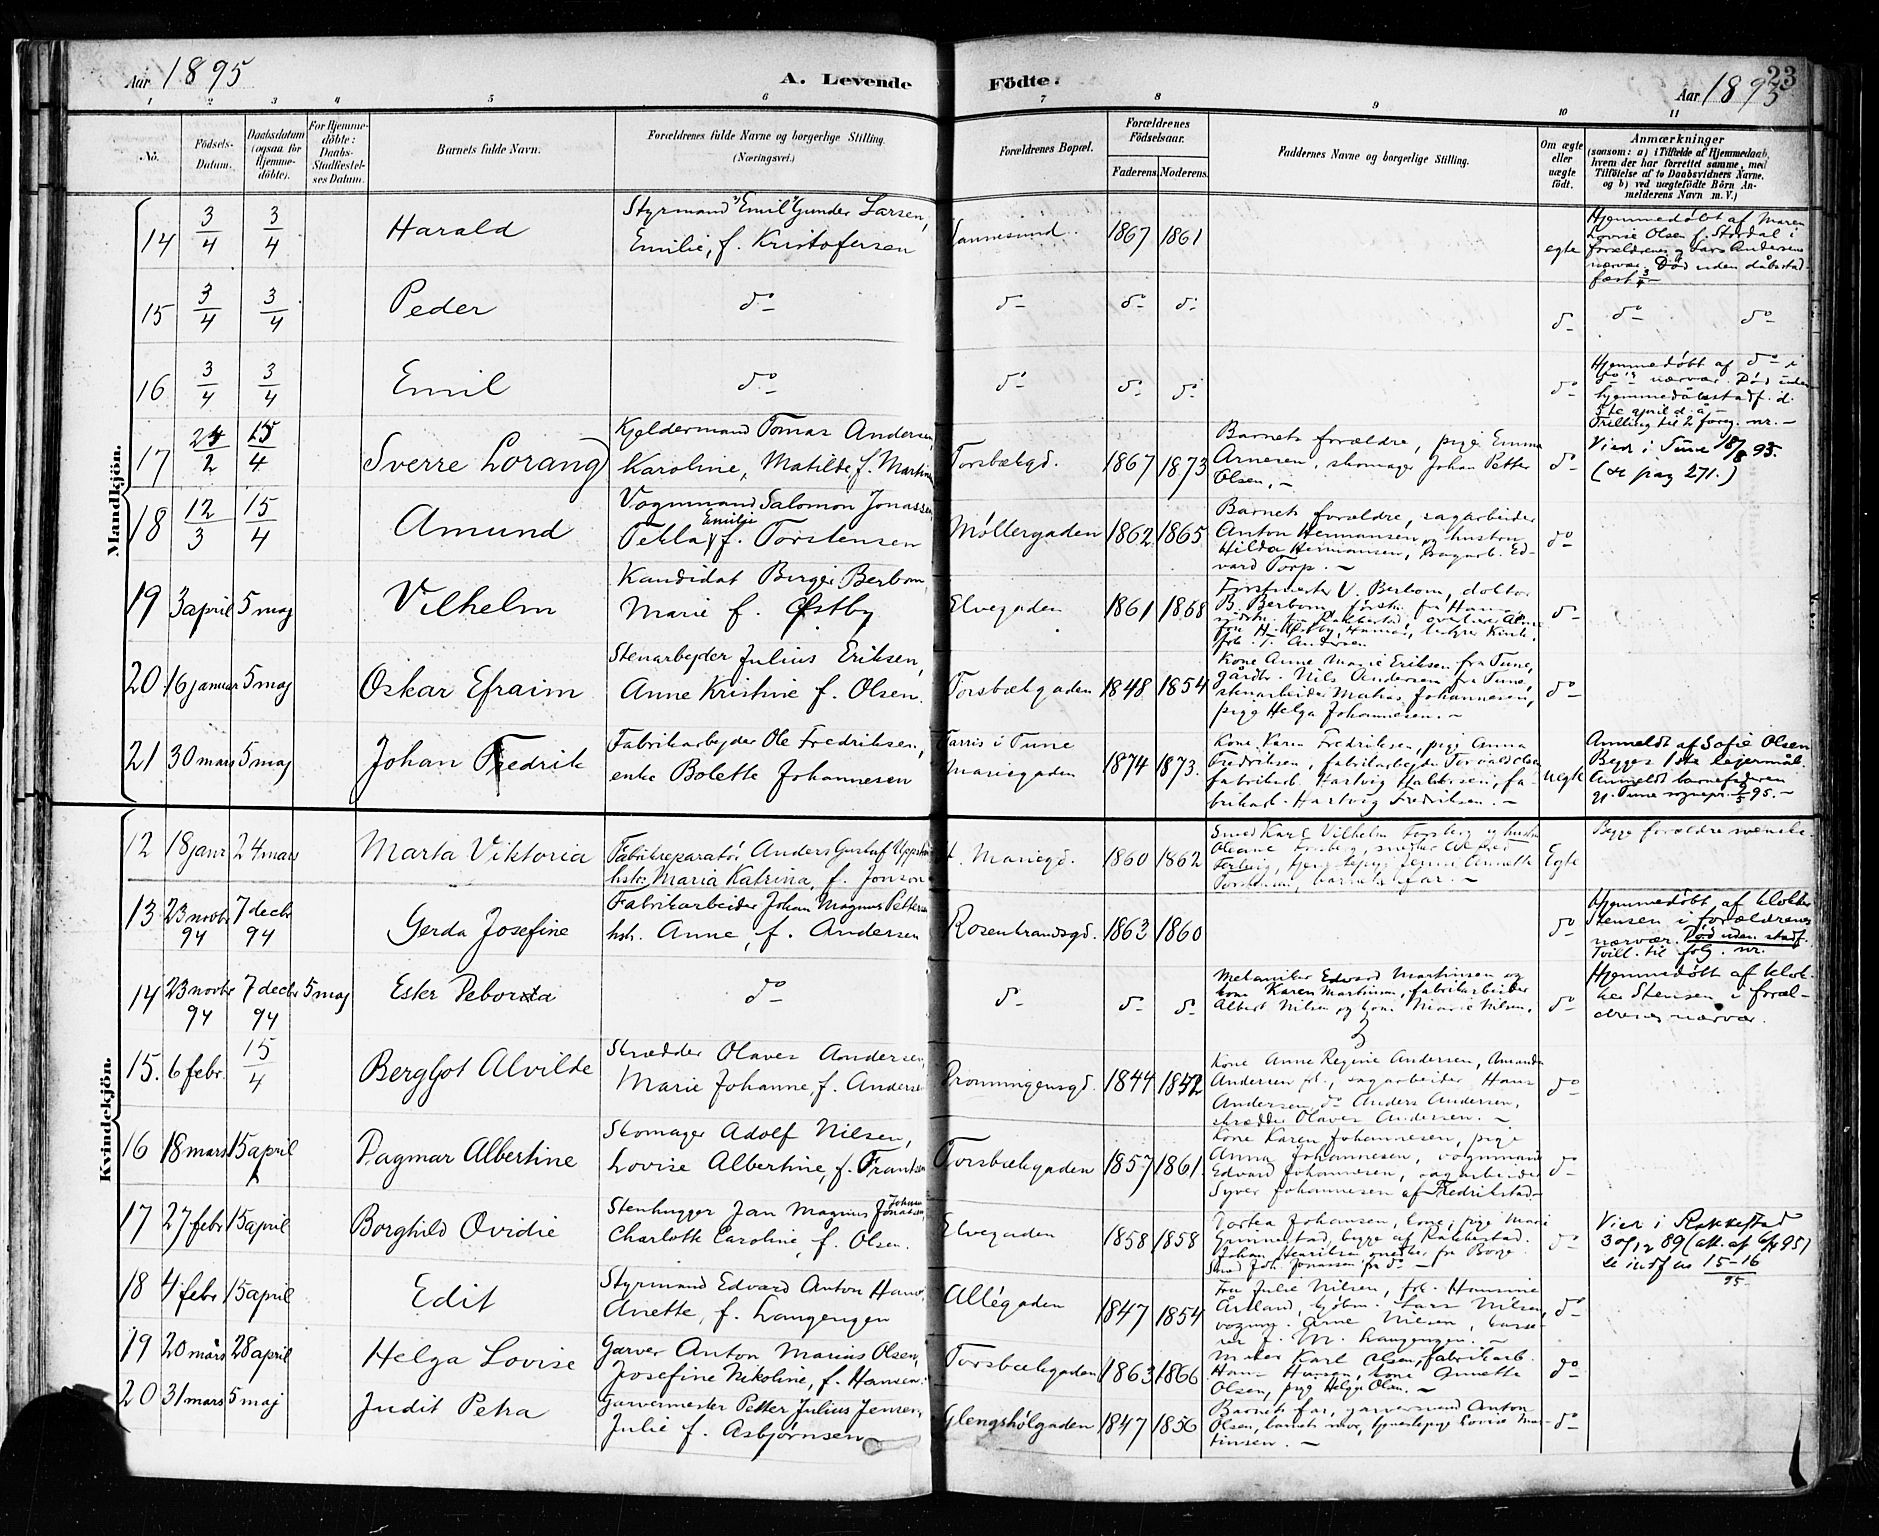 Aar 1895
A. Levende
Födte.
Aar 1895
23
1 2 3 4 5 6 7 8 9 10 11
No.
Födsels-
Datum.
Daabsdatum
(ogsaa for
Hjemme-
döbte).
For Hjemme-
döbte:
Daabs-
Stadfæstel-
ses Datum.
Barnets fulde Navn.
Forældrenes fulde Navne og borgerlige Stilling.
(Næringsvei.)
Forældrenes Bopæl.
Forældrenes
Födselsaar.
Faderens. Moderens.
Faddernes Navne og borgerlige Stilling.
Om ægte
eller
uægte
födt.
Anmærkninger
(saasom: a) i Tilfælde af Hjemmedaab,
hvem der har forrettet samme, med
Tilföielse af to Daabsvidners Navne.
og b) ved uægtefödte Börn An-
melderens Navn m. V.)
Mandkjön.
14 3/4 3/4 Harald
Styrmand Emil Gunder Larsen,
Emilie, f. Kristofersen
1867 1861
egte
Hjemmedøbt af Maren
Lovise Olsen f. Stordal i
forældrenes og Lars Andersens
nærvær. Død uden dåbsstad-
fæst 3/4 –
15 3/4 3/4 Peder do do do do do do do
16 3/4 3/4 Emil do do do do do
Hjemmedøbt af do i
do's nærvær. Død uden
hjemmedåbsstadf. d.
5te april d. å –
Trilling til 2 foreg. nr. –
17 24/2 15/4 Sverre Lorang
Kjeldermand Tomas Andersen,
Karoline, Matilde, f. Martins
Torsbækgd. 1867 1873
Barnets forældre, pige Emma
Arnesen, skomager Johan Petter
Olsen, –
do
Viet i Tune 18/8 93.
(se pag 271.)
18 12/3 15/4 Amund
Vognmand Salomon Jonassen,
Tekla Emilie f. Torstensen
Møllergaden 1862 1865
Barnets forældre, sagarbeider
Anton Hermansen og hustru
Hilda Hermansen, sagarb. Ed-
vard Torp. –
do
19 3 april 5 maj Vilhelm
Kandidat Birger Berbom,
Marie f. Østby
Elvegaden 1861 1868
Forstmester V. Berbom, doktor
do
20 16 januar 5 maj Oskar Efraim
Stenarbejder Julius Eriksen,
Anne Kristine f. Olsen.
Torsbækgaden 1848 1854
Kone Anne Marie Eriksen fra Tune,
gårdbr. Nils Andersen fra Tune,
stenarbeider Matias Johannesen,
pige Helga Johannesen. –
do
21 30 mars 5 maj Johan Fredrik
Fabrikarbejder Ole Fredriksen,
enke Bolette Johannesen
Tarris i Tune
Mariegaden 1874 1873.
Kone Karen Fredriksen, pige Anna
Fredriksen, fabrikarbejder Torvald Olsen
fabrikarb. Hartvig Halvorsen, fa-
brikarb. Hartvig Fredriksen. –
uegte
Anmeldt af Sofie Olsen
Begges 1ste lejermål.
Anmeldt barnefaderen
til Tune sognepr. 9/5 95. –
Kvindekjön.
12 18 janr 24 mars Marta Viktoria
Fabrikreparatør Anders Gustaf
hstr. Maria Katrina, f. Jonson
Mariegd. 1860 1862
Smed Karl Vilhelm Forsberg og hustru
Egte
Begge forældre svenske.
13 23 novbr 94 7 decbr 94 Gerda Josefine
Fabrikarbeider Johan Magnus Pettersen
hstr. Anne, f. Andersen
Rosenbrandsgd. 1863 1860
do
Hjemmedøbt af klokker
Stensen i forældrenes
nærvær. Død uden stadf.
Tvill. til følg. nr.
14 23 novbr 94 7 decbr 94 5 maj Ester Debora
do do do do
Mekaniker Edvard Martinsen og
kone Karen Martinsen, fabrikarbeider
Albert Nilsen og kone Marie Nilsen.
do
Hjemmedøbt af klok-
ker Stensen i foræl-
drenes nærvær.
15. 6 febr. 15/4 Bergljot Alvilde
Skrædder Olaves Andersen,
Marie Johanne, f. Andersen
Dronningensgd. 1844 1852
Kone Anne Regine Andersen, Amanda
Andersen frk., sagarbeider Hans
Andersen, do Anders Andersen,
skrædder Olaves Andersen. –
do
16 18 mars 15 april Dagmar Albertine
Skomager Adolf Nilsen,
Lovise Albertine, f. Frantsen
Torsbækgaden 1857 1861
Kone Karen Johannesen, pige
Anna Johannesen, vognmand
Edvard Johannesen, sagarbeider
Syver Johannesen af Fredrikstad –
do
17 27 febr 15 april Borghild Ovidie
Stenhugger Jan Magnus Johan Jonassen,
Charlotte Caroline, f. Olsen.
Elvegaden 1858 1858
Dortea Johansen, kone, pige Marie
Grimmestad, begge af Rakkestad.
Johan Henriksen smedker fra Borge
Smed Joh. Jonassen fra do –
do
Viet i Rakkestad
30/12 89 (att. af 6/4 95)
se indf. nr 15–16/95
18 4 febr 15 april Edit
Styrmand Edvard Anton Hans,
Anette, f. Langengen
Allégaden 1847 1854
Fru Julie Nilsen, frk. Hansine
Årtland, kjøbm. Lars Nilsen,
vognm. Arne Nilsen, kasse-
rer J. M. Langengen. –
do
19 20 mars 28 april Helga Lovise
Garver Anton Marius Olsen,
Josefine Nikoline, f. Hansen.
Torsbækgaden 1863 1866
Maler Karl Olsen, fabrikarb.
Hans Hansen, kone Annette
Olsen, pige Helga Olsen. –
do
20 31 mars 5 maj Judit Petra
Garvermester Petter Julius Jensen,
Julie f. Asbjørnsen
Glengshølgaden 1847 1856
Barnets far, garversvend Anton
Olsen, barnets mor, tjenestepige Lovise Mar-
tinsen. –
do